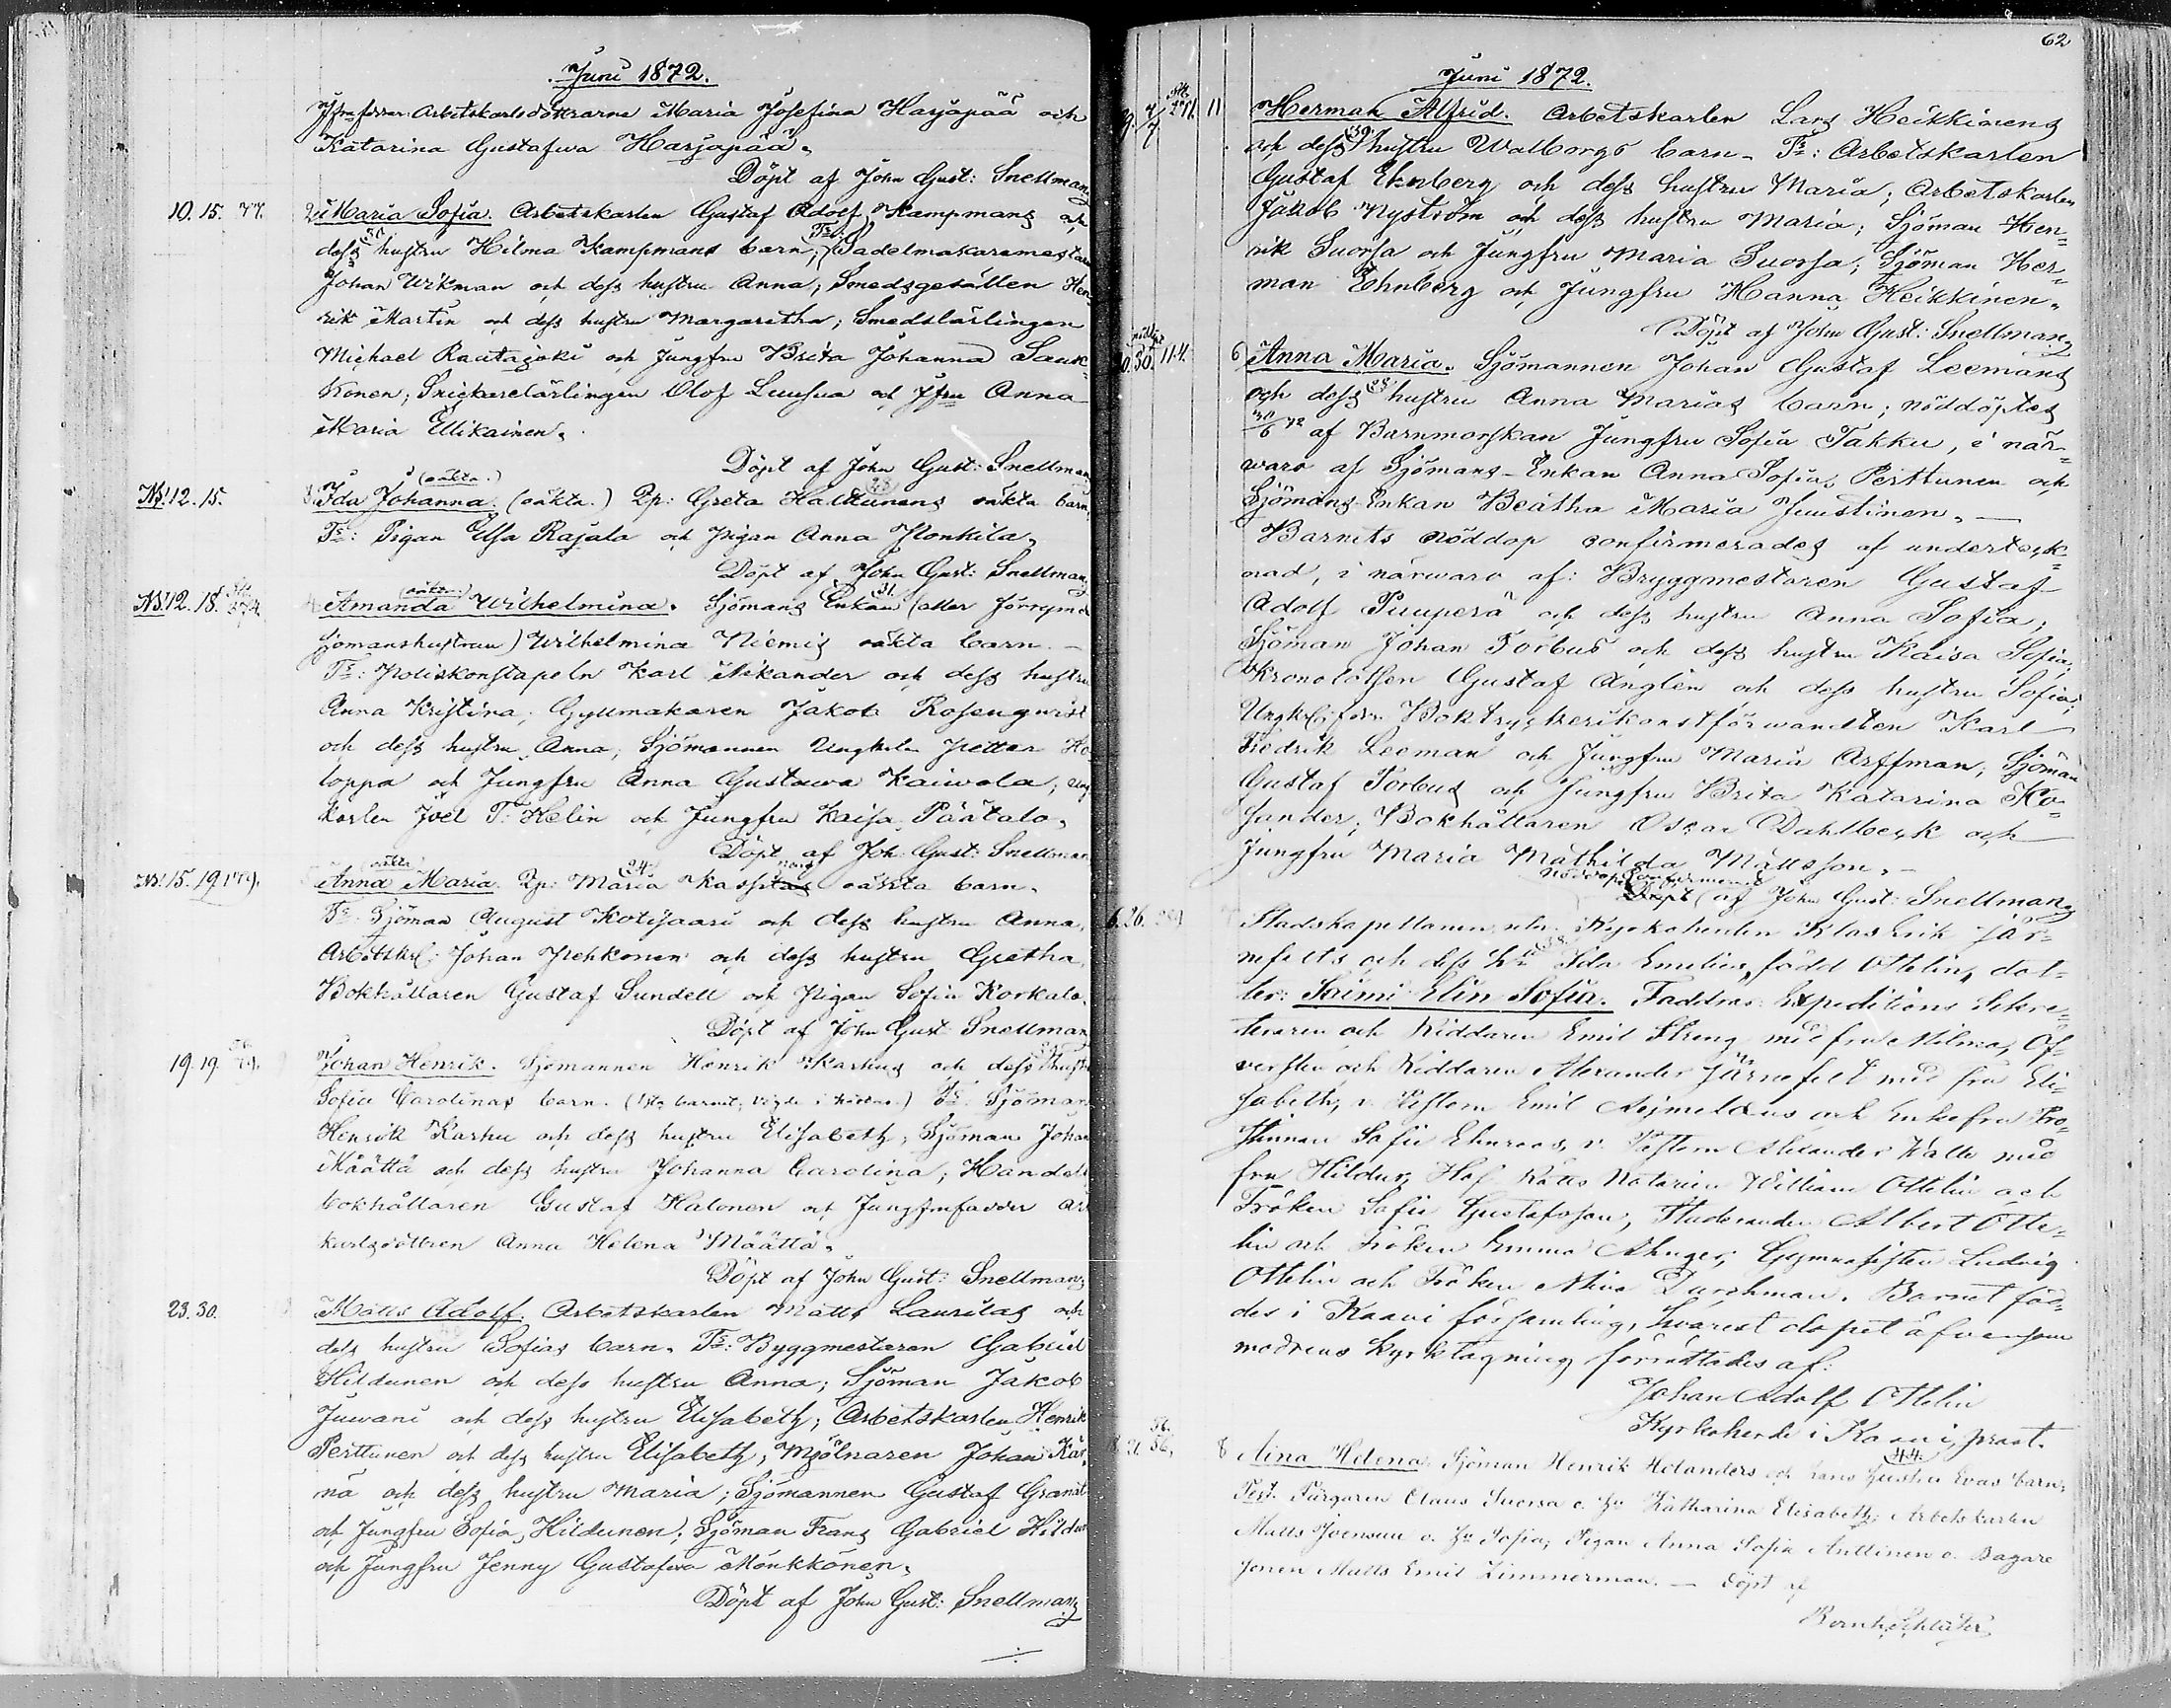 Juni 1872.
Jfrufaddrar: Arbetskarlsdöttrarne Maria Josefina Harjapää och
Katarina Gustafwa Harjapää.
Döpt af John Gust: Snellman
10. 15. 77. Maria Sofia. Arbetskarlen Gustaf Adolf Kampmans och
dess hustru Hilma Kampmans barn; Sadelmakaremästaren
Johan Wikman och dess hustru Anna; Smedsgesällen Hen-
rik Martin och dess hustru Margaretha; Smedslärlingen
Michael Raatajoki och Jungfru Brita Johanna Sauk-
konen; Snickarelärlingen Olof Luusua och Jfru Anna
Maria Ellikainen.
Döpt af John Gust: Snellman
(oäkta.)
N3! 12. 15. Ida Johanna. (oäkta.) Qp: Greta Halttunens oäkta barn.
Ts: Pigan Elsa Rajala och Pigan Anna Honkila.
Döpt af John Gust: Snellman
(oäkta.)
N3! 12. 18. 374. Amanda Wilhelmina. Sjömans Enkan (eller förrymde
sjömanshustrun) Wilhelmina Niemis oäkta barn.
Ts: Poliskonstapeln Karl Nikander och dess hustru
Anna Kristina; Gyllmakaren Jakob Rosenqwist
och dess hustru Anna; Sjömannen Ungkarln Petter Ho-
loppa och Jungfru Anna Gustawa Kaiwola; Ung
karlen Joel T. Helin och Jungfru Kaisa Päätalo.
Döpt af Joh. Gust: Snellman
oäkta
N3! 15. 19. 179. Anna Maria. Qp: Maria oäkta barn.
Ts. Sjöman August Kotisaari och dess hustru Anna,
Arbetskrl: Johan Pehkonen och dess hustru Gretha,
Bokhållaren Gustaf Sundell och Pigan Sofia Korkala.
Döpt af John Gust: Snellman
19. 19. 79. Johan Henrik. Sjömannen Henrik Karhus och dess hustru
Sofia Carolinas barn. Ts. Sjöman
Henrik Karhu och dess hustru Elisabeth; Sjöman Johan
Määttä och dess hustru Johanna Carolina; Handels
bokhållaren Gustaf Halonen och Jungfrufadder Ar
karlsdottren Anna Helena Määttä.
Döpt af John Gust: Snellman
23. 30. Matts Adolf. Arbetskarlen Matts Laurilas och
dess hustru Sofias barn. Ts: Byggmestaren Gabriel
Hildunen och dess hustru Anna; Sjöman Jakob
Juwani och dess hustru Elisabeth; Arbetskarlen Henrik
Perttunen och dess hustru Elisabeth; Mjölnaren Johan Kär-
nä och dess hustru Maria; Sjömannen Gustaf Granat
och Jungfru Sofia Hildunen; Sjöman Frans Gabriel Hildun
och Jungfru Jenny Gustafwa Mönkkönen.
Döpt af John Gust: Snellman
62
Juni 1872.
271. 11 Herman Alfrid. Arbetskarlen Lars Heikkinens
och dess 39 hustru Walborgs barn. Ts: Arbetskarlen
Gustaf Ehnberg och dess hustru Maria; Arbetskarlen
Jakob Nyström och dess hustru Maria; Sjöman Hen-
rik Suorsa och Jungfru Maria Suorsa; Sjöman Her-
man Ehnberg och Jungfru Hanna Heikkinen.
Döpt af John Gust: Snellman
30. 114. 6 Anna Maria. Sjömannen Johan Gustaf Leemans
och dess 28 hustru Anna Marias barn; nöddöptes
30/6 72 af Barnmorskan Jungfru Sofia Takku, i när-
waro af Sjömans-Enkan Anna Sofia Perttunen och
Sjömans-Enkan Beatha Maria Juustinen. —
Barnets nöddop confirmerades af underteck-
nad, i närwaro af: Bryggmestaren Gustaf
Adolf Puuperä och dess hustru Anna Sofia;
Sjöman Johan Torbus och dess hustru Kaisa Sofia;
Kronolotsen Gustaf Anglén och dess hustru Sofia;
Boktryckerikonstförwandten Karl
Fredrik Leeman och Jungfru Maria Arffman; Sjöman
Gustaf Torbus och Jungfru Brita Katarina Ko-
sander; Bokhållaren Oscar Dahlbeck och
Jungfru Maria Mathilda Mattsson. —
Nöddopet Confirmerad
Döpt af John Gust: Snellman
6. 26. Stadskapellanen, utn. Kyrkoherden Klas Erik Jär-
nefelts och dess h:u 38 Ida Emilia, född Ottelin, dot-
ter: Saimi Elin Sofia. Faddrar: Expeditions Sekre-
teraren och Riddaren Emil Streng med fru Milma, Öf-
versten och Riddaren Alexander Järnefelt med fru Eli-
sabeth, v. Pastorn Emil och Enkefru Pro-
stinnan Sofie Ehnroos, v. Pastorn Alexander Walle med
fru Hildur, Hof Rätts Notarien William Ottelin och
Fröken Sofie Gustafsson, Studeranden Albert Otte-
lin och Fröken Emma Ahnger, Gymnasisten Ludvig
Ottelin och Fröken Mina Durchman. Barnet föd-
des i Kaavi församling, hvarest dopet äfvensom
modrens kyrktagning förrättades af:
Johan Adolf Ottelin
Kyrkoherde i Kaavi, prost.
56. 8 Aina Helena Sjöman Henrik Helanders och hans hustru 44 Evas barn.
Test. Färgaren Claus Suorsa o. hu Katharina Elisabeth; Arbetskarlen
Matts Joensuu o. hu Sofia; Pigan Anna Sofia Anttinen o. Bagare
sonen Matts Emil Zimmerman. — Döpt af